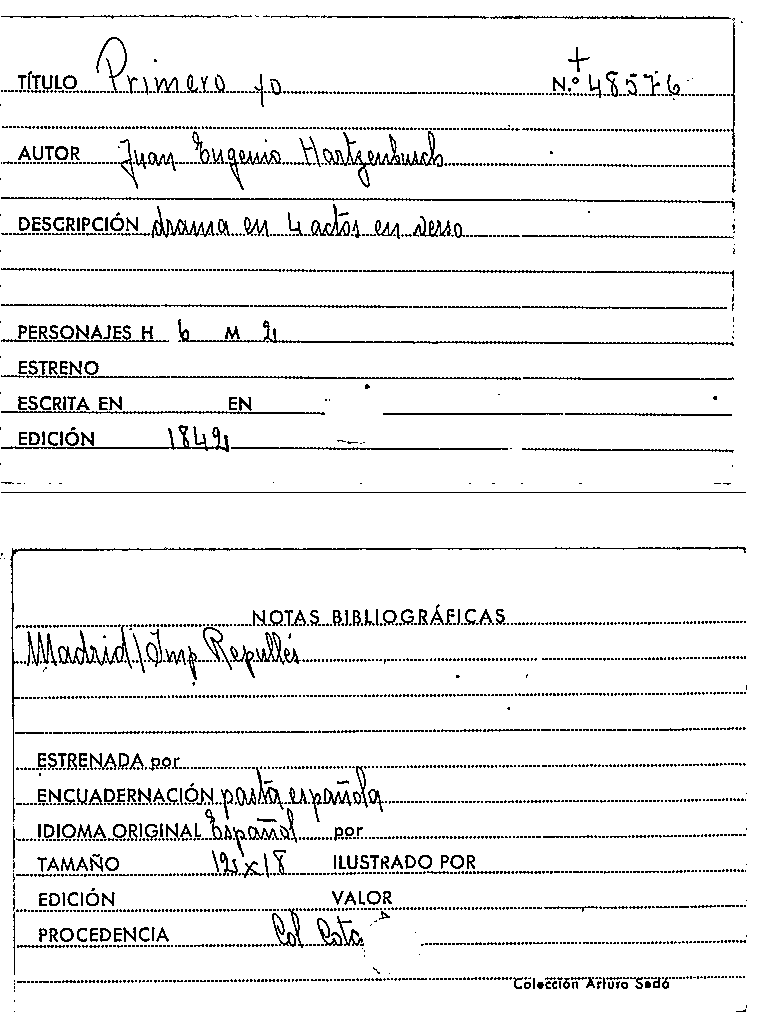 TÍTULO Primero yo N.º 48576
AUTOR Juan Eugenio Hartzenbusch
DESCRIPCIÓN drama en 4 actos en verso
PERSONAJES H 6 M 2
ESTRENO
ESCRITA EN EN
EDICIÓN 1842
NOTAS BIBLIOGRÁFICAS
Madrid/Imp Repullés
ESTRENADA por
ENCUADERNACIÓN pasta española
IDIOMA ORIGINAL Español por
TAMAÑO 12x18 ILUSTRADO POR
EDICIÓN VALOR
PROCEDENCIA Col Cota
Colección Arturo Sedó